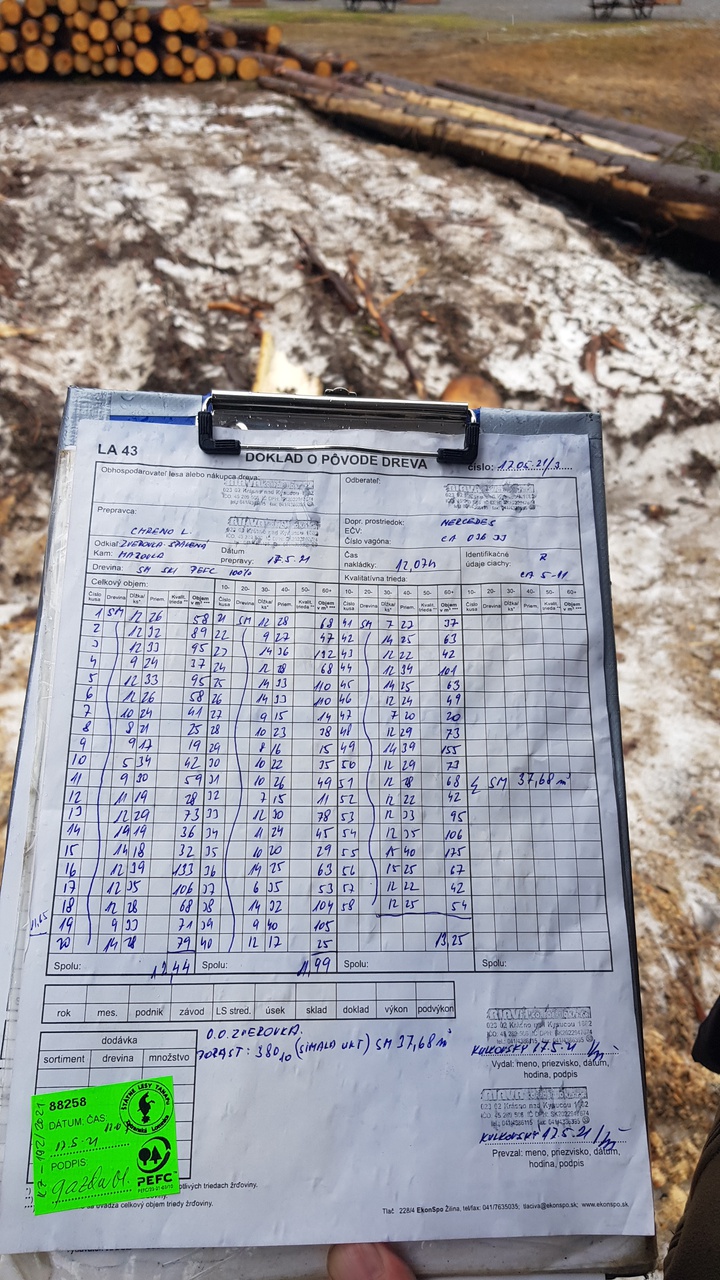 LA 43
DOKLAD O PÔVODE DREVA
číslo: 17.05.21/3
Obhospodarovateľ lesa alebo nákupca dreva:
Odberateľ:
Prepravca:
CHRENO L.
Dopr. prostriedok: MERCEDES
EČV:
Číslo vagóna:
Odkiaľ: ZVEROVKA-SPÁLENÁ
Kam:
Dátum
prepravy: 17.5.21
Čas
nakládky: 12,07h
Identifikačné
údaje ciachy:
CA 5-11
Drevina: SM SKI PEFC 100%
Celkový objem:
Kvalitatívna trieda:
10- 20- 30- 40- 50- 60+
Číslo kusa Drevina Dĺžka/ks* Priem. Kvalit. trieda** Objem v m³ ***
1 SM 12 26 58 21 SM 12 28 68 41 SM 7 27 37
2 12 32 89 22 9 27 47 42 14 25 63
3 12 33 95 23 14 36 43 12 22 42
4 9 24 37 24 12 28 68 44 12 34 101
5 12 33 95 25 14 33 110 45 14 25 63
6 12 26 58 26 14 33 110 46 12 24 49
7 10 24 41 27 9 15 14 47 7 20 20
8 8 21 25 28 10 23 38 48 12 29 73
9 9 17 19 29 8 16 15 49 14 39 155
10 5 34 42 30 10 22 35 50 12 29 73
11 9 30 59 31 10 26 49 51 12 28 68 SM 37,68 m³
12 11 19 28 32 7 15 11 52 12 22 42
13 12 29 73 33 12 30 78 53 12 33 95
14 36 34 11 24 45 54 12 35 106
15 14 18 32 35 10 20 29 55 15 40 175
16 12 39 133 36 14 25 63 56 15 25 67
17 12 35 106 37 6 35 53 57 12 22 42
18 12 28 68 38 14 32 104 58 12 25 54
19 9 33 71 39 9 40 105
20 14 28 79 40 12 17 25 13,25
Spolu: 12,44 Spolu: 11,99 Spolu: Spolu:
rok mes. podnik závod LS stred. úsek sklad doklad výkon podvýkon
dodávka
sortiment drevina množstvo
O.O. ZVEROVKA.
PORAST: 380 10 SM 37,68 m³
KULKOVSKÝ 17.5.21
Vydal: meno, priezvisko, dátum,
hodina, podpis
KULKOVSKÝ 17.5.21
Prevzal: meno, priezvisko, dátum,
hodina, podpis
88258
DÁTUM: ČAS
17.5.21
PODPIS:
ŠTÁTNE LESY TANAPu
PEFC
Tlač 228/4 EkonSpo Žilina, tel/fax: 041/7635035; tlaciva@ekonspo.sk; www.ekonspo.sk